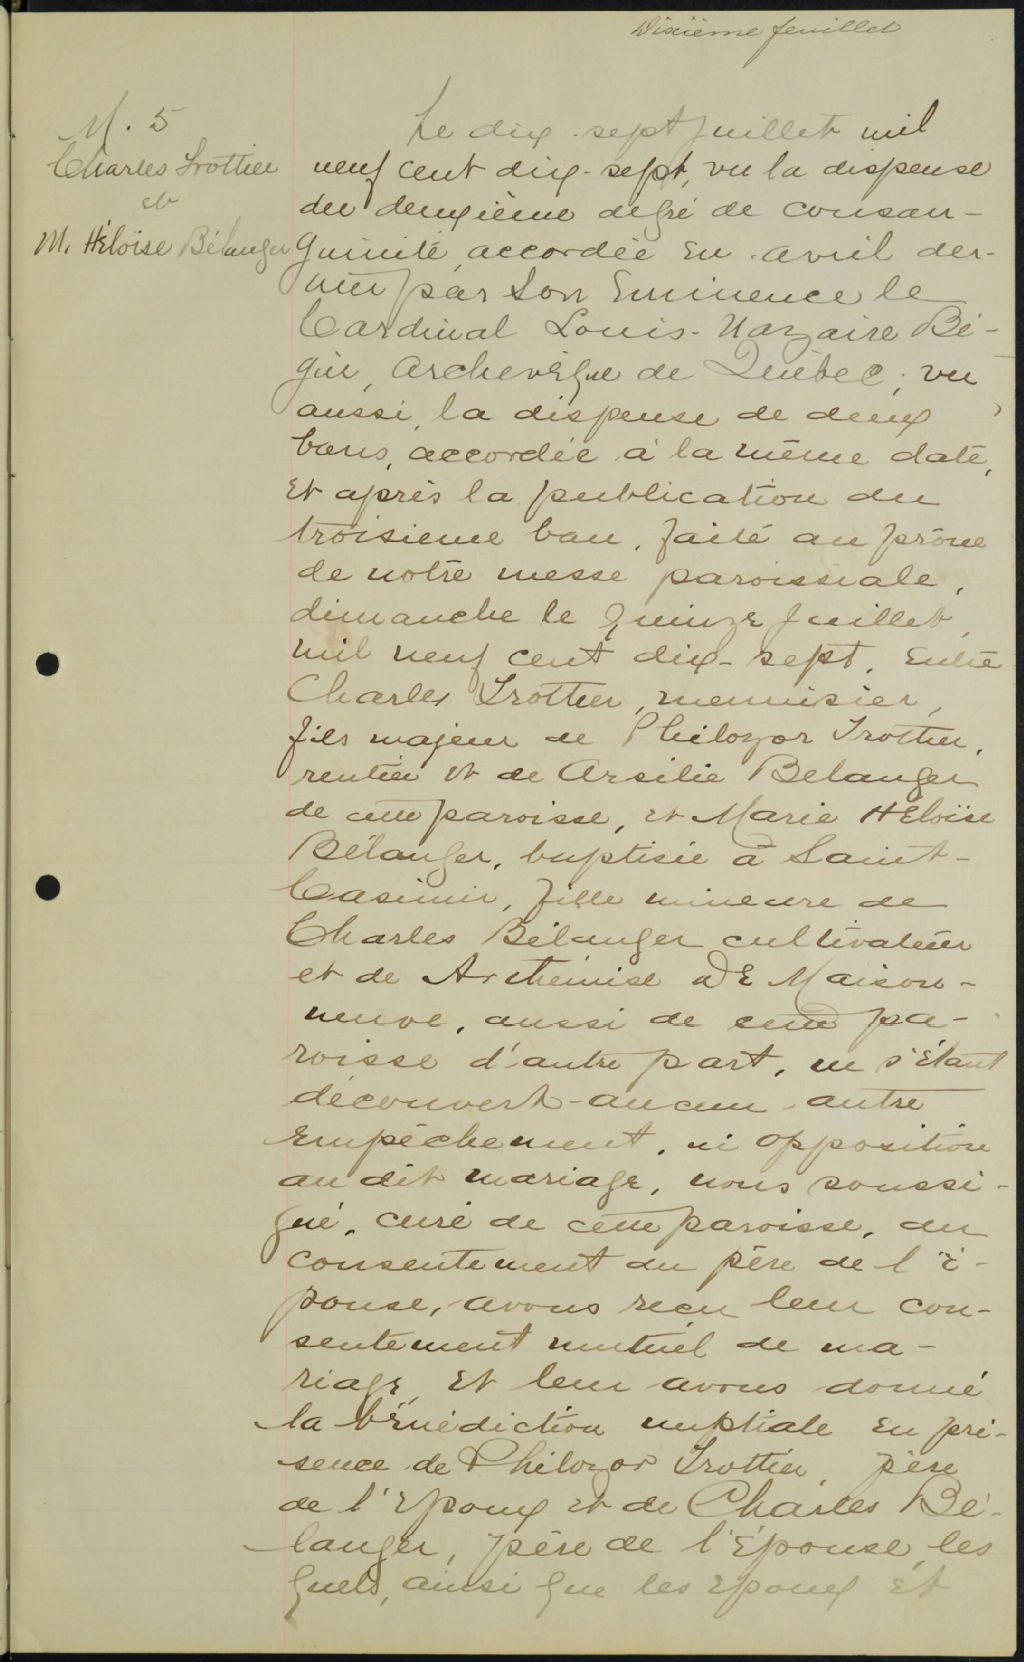 Dixième feuillet
M. 5
Charles Trottier
et
M. Héloïse Bélanger
Le dix-sept juillet mil
neuf cent dix-sept, vu la dispense
du deuxième degré de consan-
guinité, accordée en avril der-
nier par Son Eminence le
Cardinal Louis-Nazaire Bé-
gin, Archevêque de Québec; vu
aussi, la dispense de deux
bans, accordée à la même date,
et après la publication du
troisieme ban, faite au prône
de notre messe paroissiale,
dimanche le quinze juillet,
mil neuf cent dix-sept, Entre
Charles Trottier, menuisier,
fils majeur de Philozor Trottier,
rentier et de Arsilie Belanger
de cette paroisse, et Marie Héloïse
Bélanger, baptisée à Saint-
Casimir, fille mineure de
Charles Bélanger cultivateur
et de Arthémise DE Maison-
neuve, aussi de cette pa-
roisse d'autre part, ne s'étant
découvert aucun autre
empêchement, ni opposition
au dit mariage, nous soussi-
gné, curé de cette paroisse, du
consentement du père de l'é-
pouse, avons reçu leur con-
sentement mutuel de ma-
riage, Et leur avons donné
la bénédiction nuptiale en pré-
sence de Philozor Trottier, père
de l'Epoux et de Charles Bé-
langer, père de l'Épouse, les
quels, ainsi que les epoux et